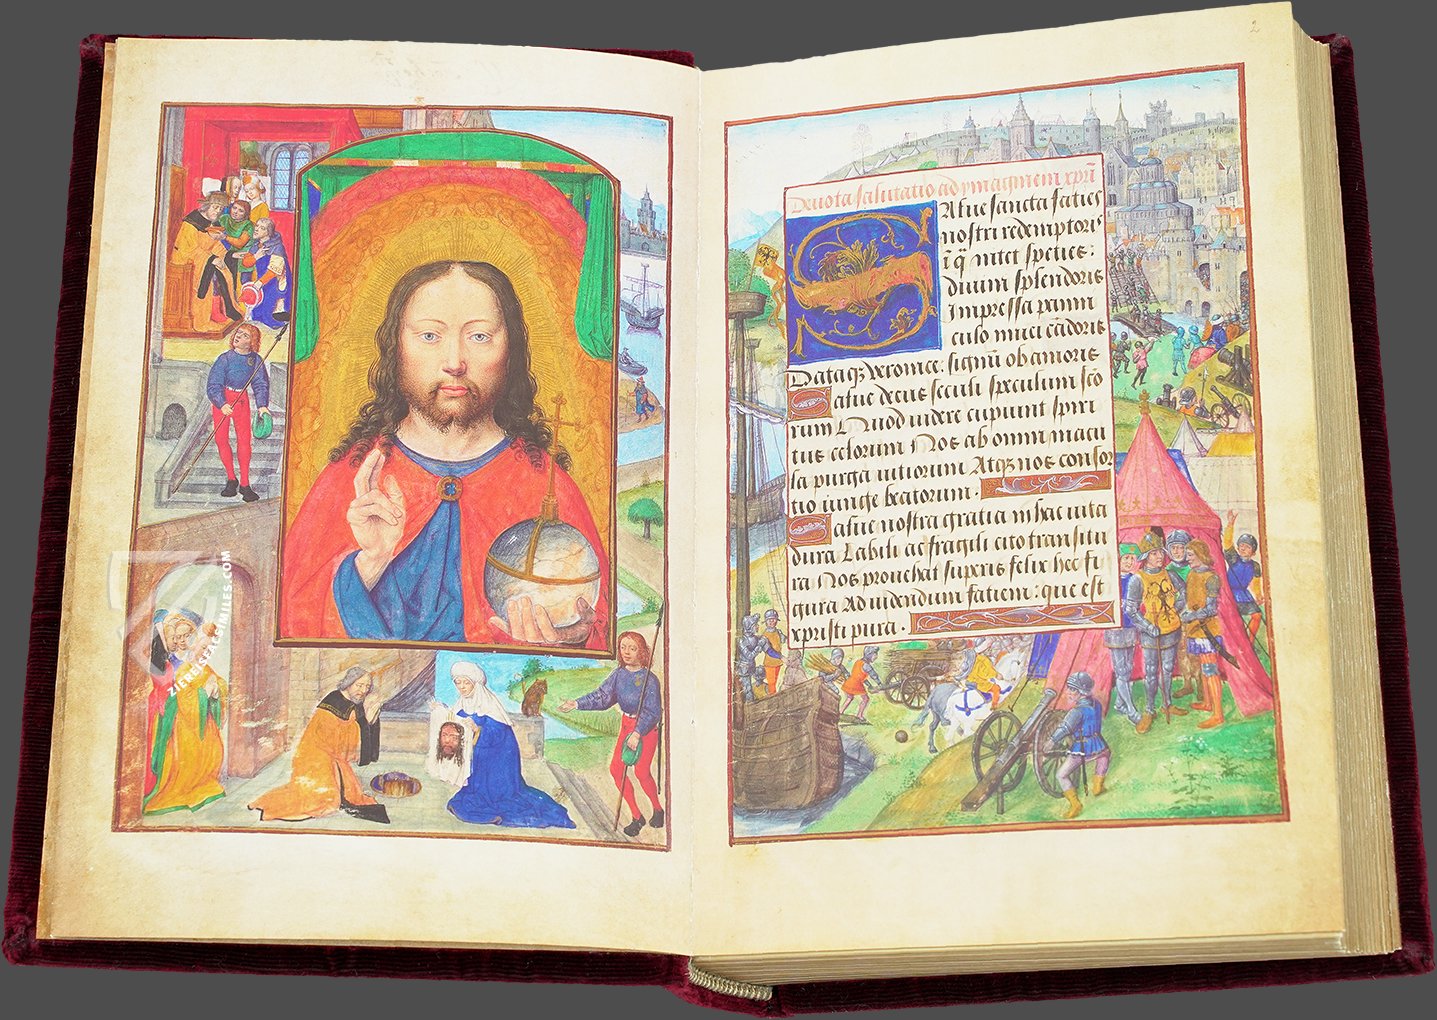 2
Deuota salutatio ad ymaginem xpri
Salue sancta facies
nostri redemptoris
ī q̄ nitet species:
diuini splendoris
Impressa panni
culo niuei cādoris
Dataqȝ veronice: signū ob amoris
Salue decus seculi speculum scō
rum Quod videre cupiunt spiri
tus celorum Nos ab omni macu
la purga vitiorum Atqȝ nos consor
tio iunge beatorum.
Salue nostra gratia in hac vita
dura Labili ac fragili cito transitu
ra Nos prouehat superis felix hec fi
gura Ad videndum faciem: que est
xpristi pura.
ZIEREISFACSIMILES.COM